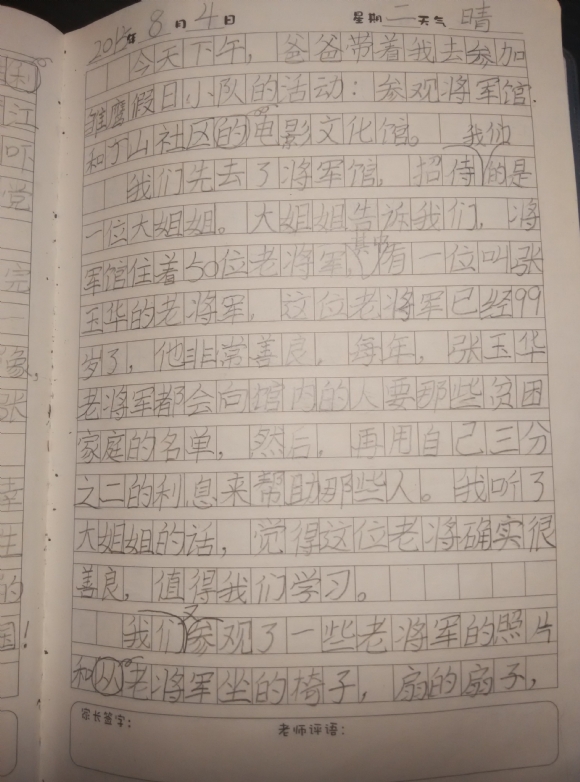 2015年 8月4日 星期二 天气 晴
今天下午，爸爸带着我去参加
雏鹰假日小队的活动：参观将军馆
和丁山社区的电影文化馆。我们
我们先去了将军馆，招待的是
一位大姐姐。大姐姐告诉我们，将
军馆住着50位老将军，其中有一位叫张
玉华的老将军，这位老将军已经99
岁了，他非常善良，每年，张玉华
老将军都会向馆内的人要那些贫困
家庭的名单，然后，再用自己三分
之二的利息来帮助那些人。我听了
大姐姐的话，觉得这位老将确实很
善良，值得我们学习。
我们又参观了一些老将军的照片
和从老将军坐的椅子，扇的扇子，
家长签字： 老师评语：
江
吓
党
完
象，
张
生
的
国！